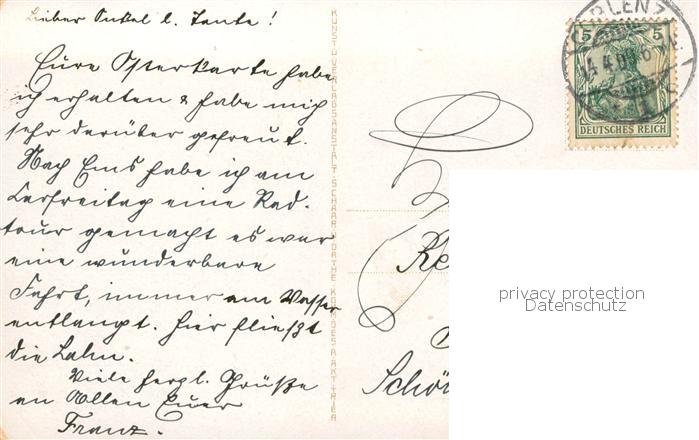 Lieber Onkel u. Tante!
Eure Osterkarte habe
ich erhalten & habe mich
sehr darüber gefreut.
Nach Ems habe ich am
Carfreitag eine Rad-
tour gemacht es war
eine wunderbare
Fahrt, immer am Wasser
entlangt. Hier fließt
die Lahn.
Viele herzl. Grüße
an Allen Euer
Franz.
KUNST U. VERLAGSANSTALT SCHAAR & DATHE KOMM.GES.A.AKT. TRIER
5 5
DEUTSCHES REICH
privacy protection
Datenschutz
Schö